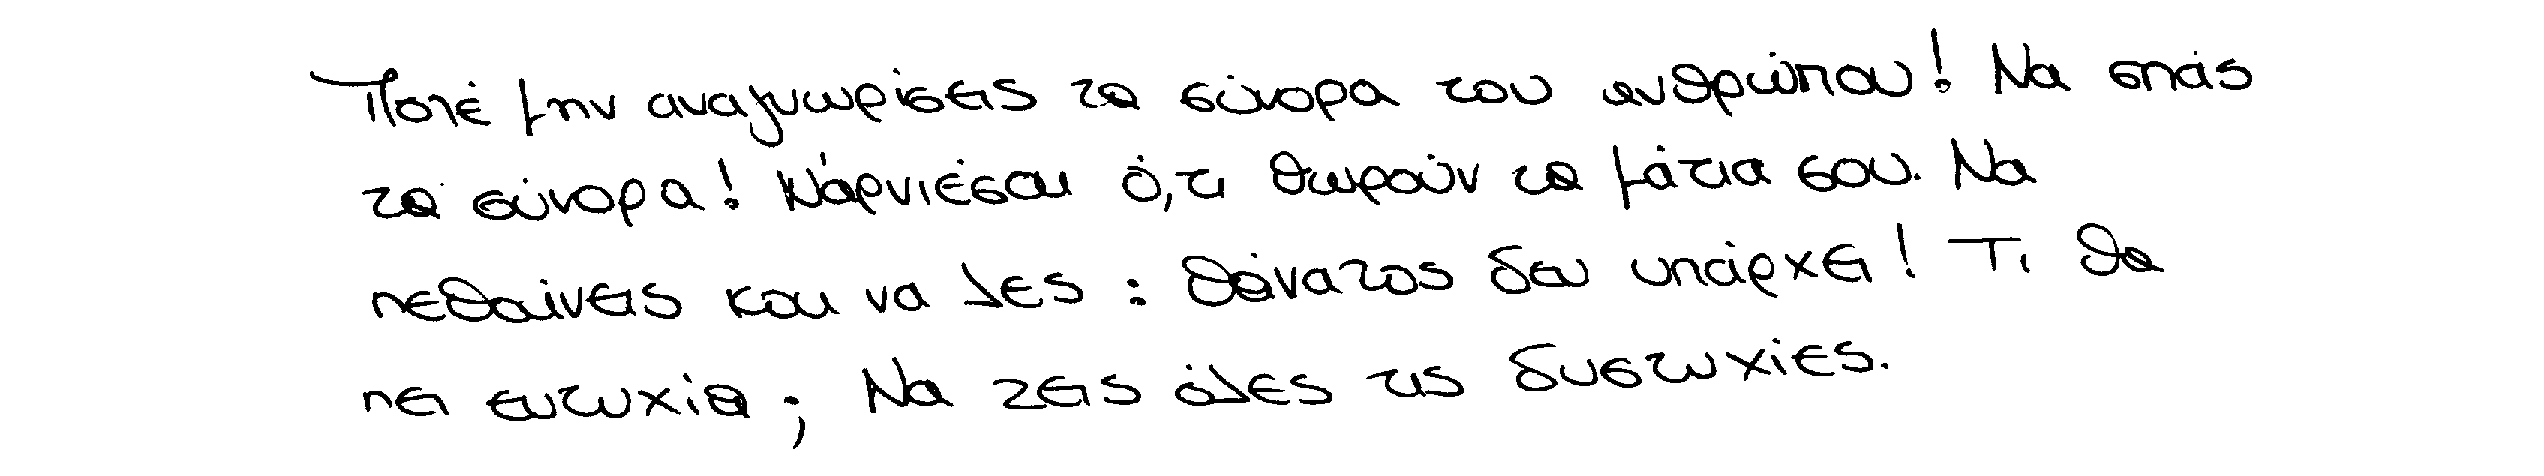 Ποτέ μην αναγνωρίσεις τα σύνορα του ανθρώπου! Να σπάς
τα σύνορα! Ν'άρνιέσαι ό,τι θωρούν τα μάτια σου. Να
πεθαίνεις και να λες : θάνατος δεν υπάρχει! Τι θα
πει ευτυχία; Να ζεις όλες τις δυστυχίες.